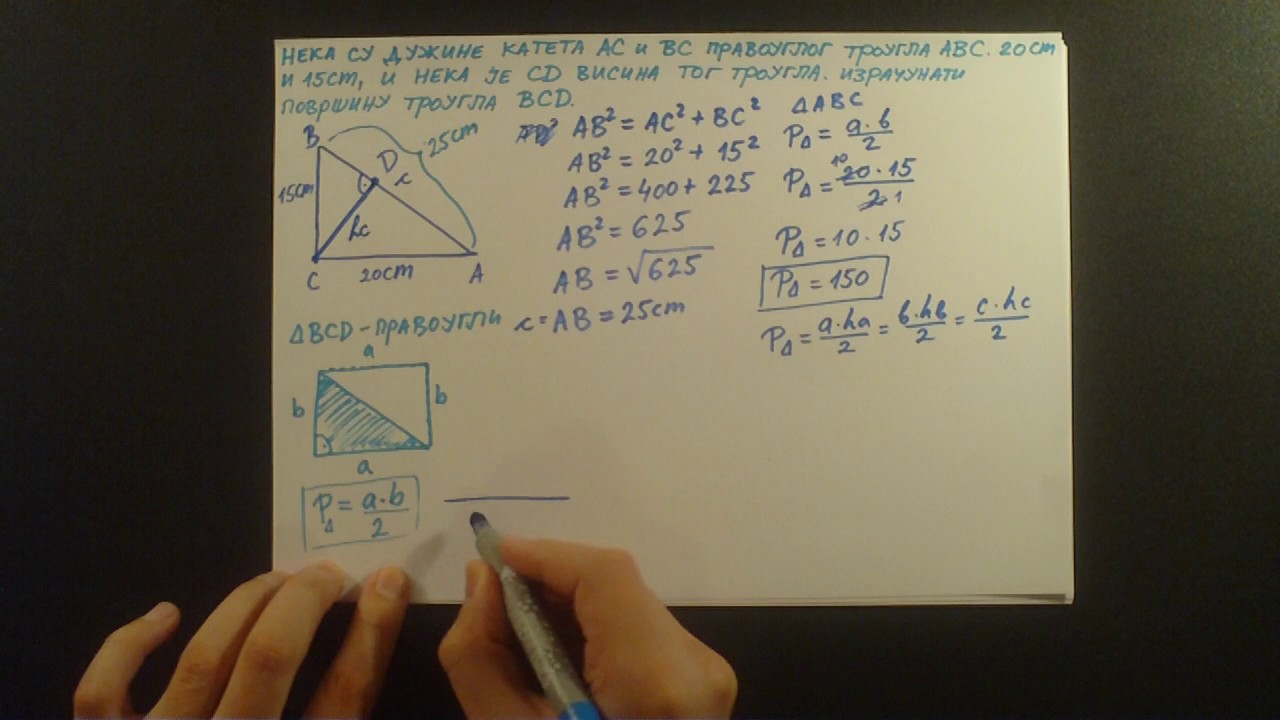 НЕКА СУ ДУЖИНЕ КАТЕТА АС И ВС ПРАВОУГЛОГ ТРОУГЛА АВС. 20cm
И 15cm, И НЕКА ЈЕ CD ВИСИНА ТОГ ТРОУГЛА. ИЗРАЧУНАТИ
ПОВРШИНУ ТРОУГЛА BCD.
B
25cm
D
c
15cm
hc
C
20cm
A
AB² = AC² + BC²
AB² = 20² + 15²
AB² = 400 + 225
AB² = 625
AB = √625
c = AB = 25cm
ΔABC
P△ = a·b/2
P△ = 20·15/2
10
1
P△ = 10·15
P△ = 150
P△ = a·ha/2 = b·hb/2 = c·hc/2
ΔBCD - ПРАВОУГЛИ
a
b
b
a
P△ = a·b/2